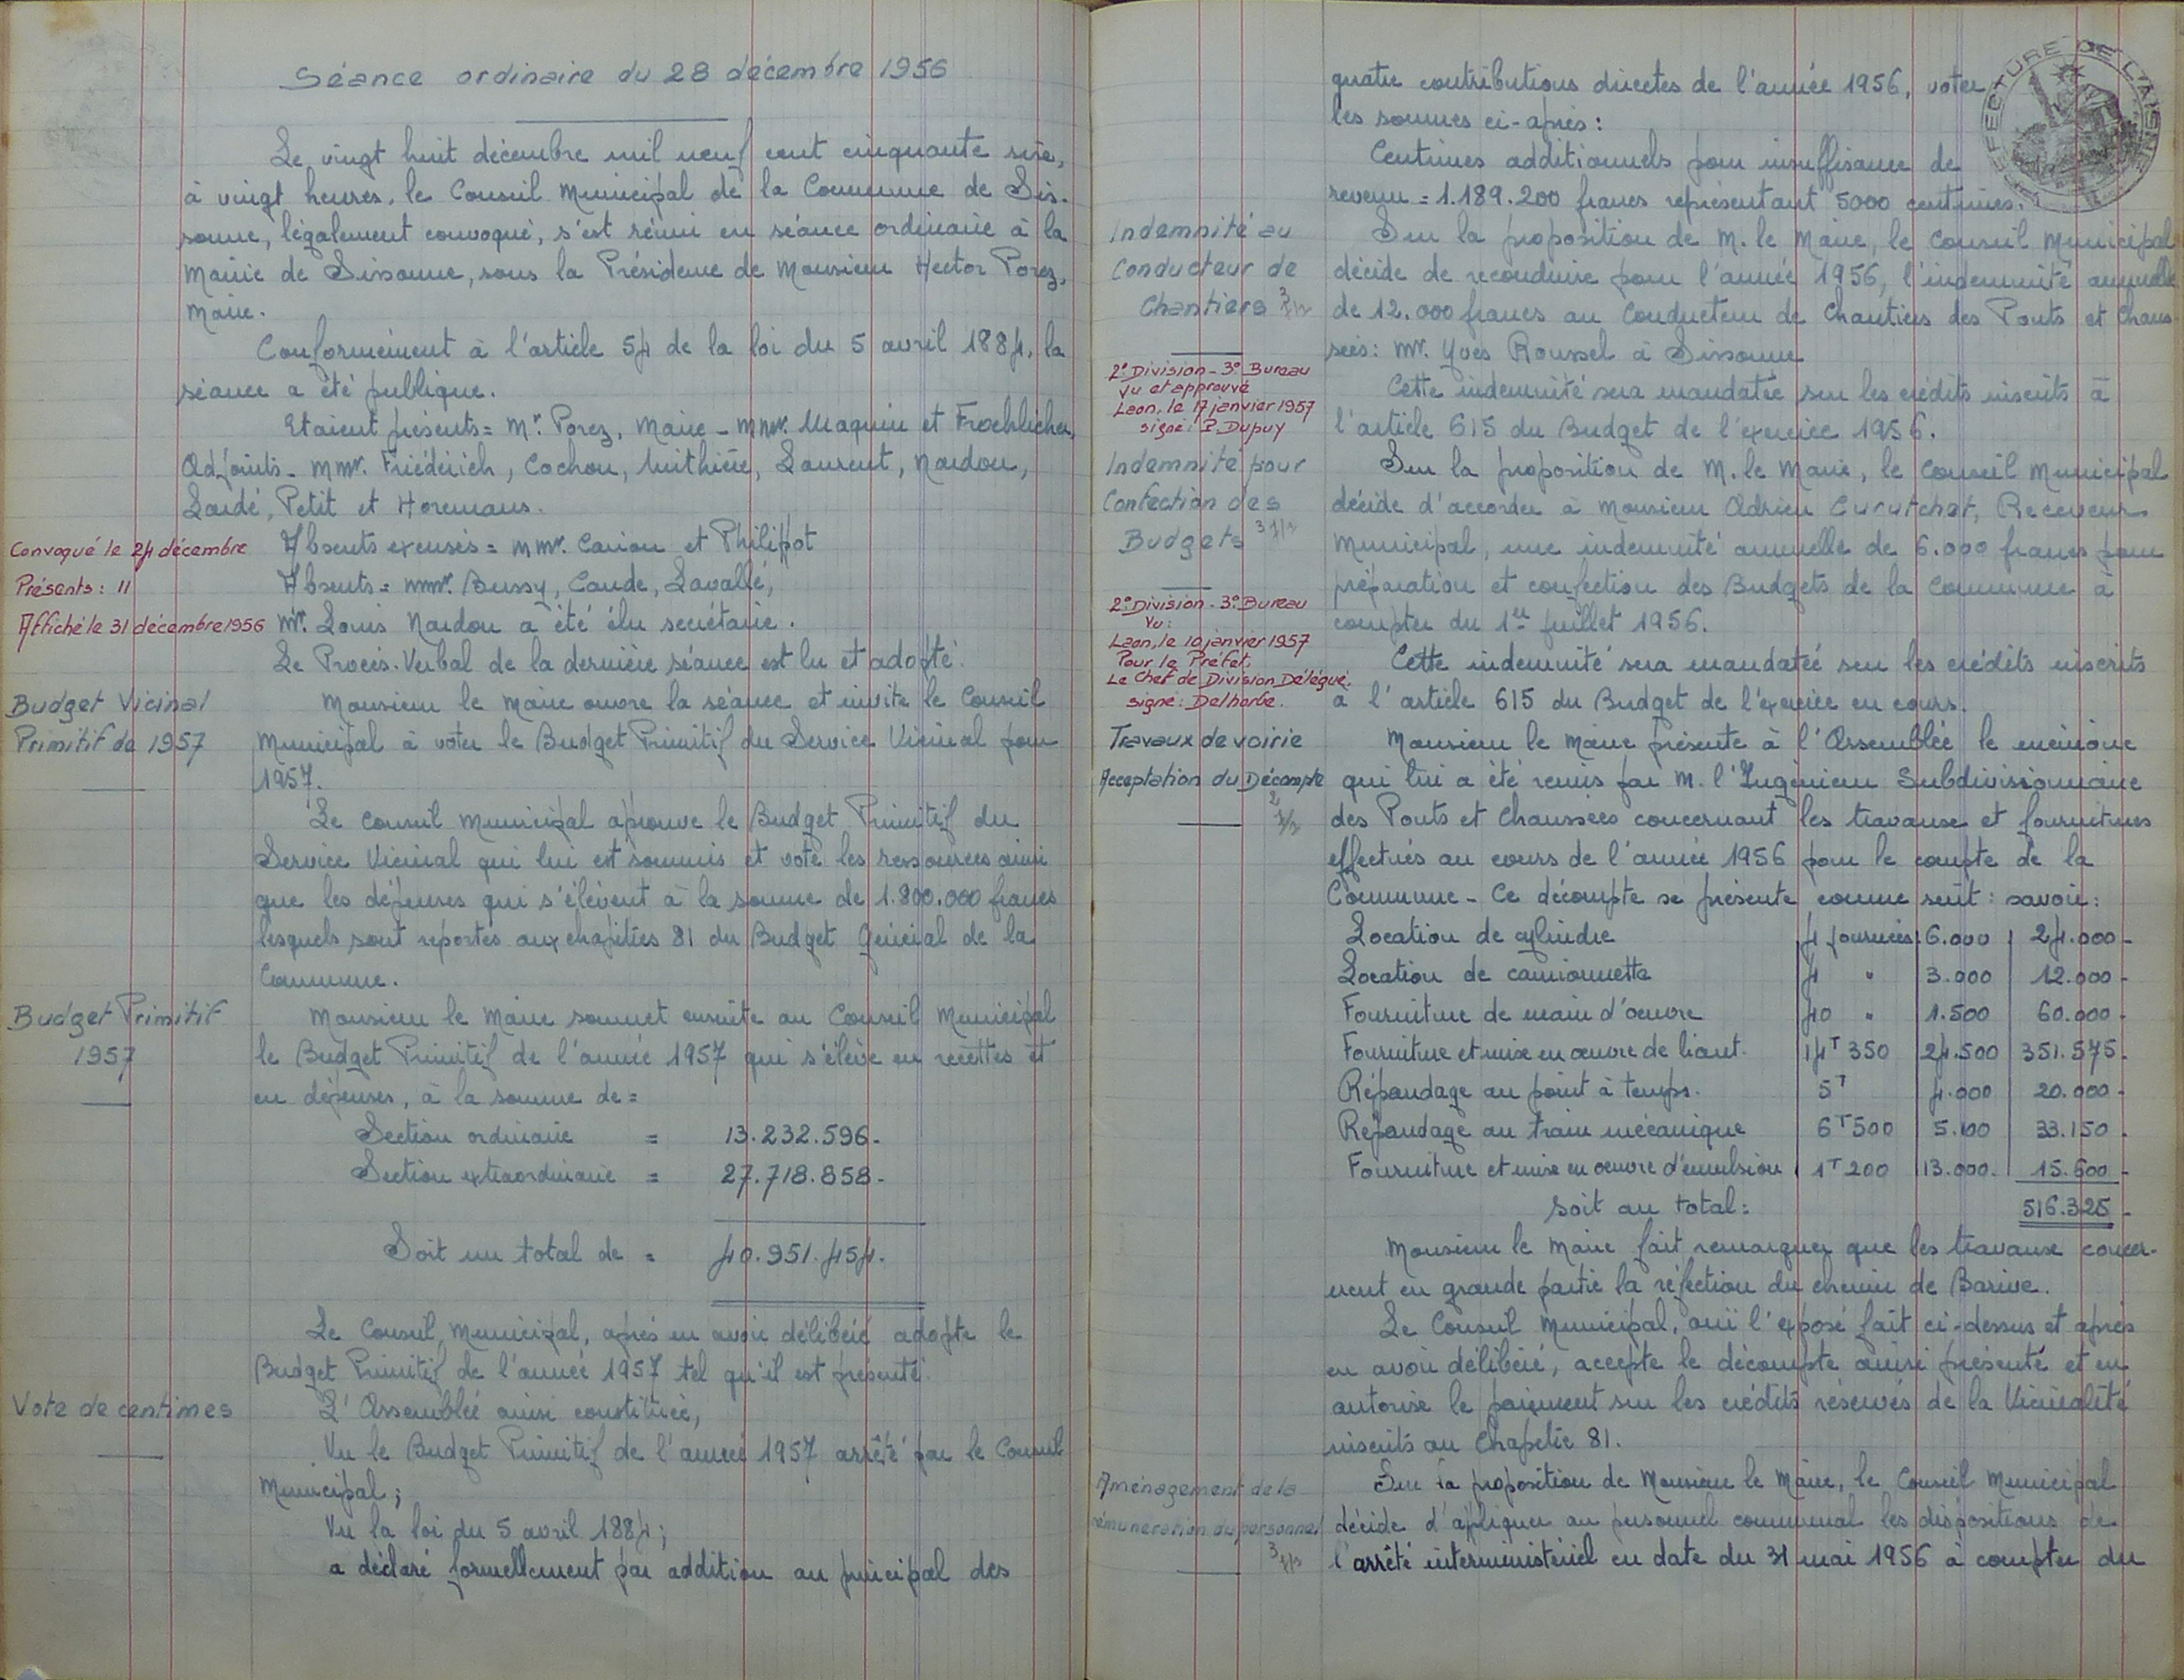 Séance ordinaire du 28 décembre 1956
Le vingt huit décembre mil neuf cent cinquante six,
à vingt heures, le Conseil Municipal de la Commune de Sis-
sonne, légalement convoqué, s'est réuni en séance ordinaire à la
Mairie de Sissonne, sous la Présidence de Monsieur Hector Porez,
Maire.
Conformément à l'article 54 de la loi du 5 avril 1884, la
séance a été publique.
Etaient présents = Mr. Porez, Maire - MMr. Maquin et Froehlicher,
Adjoints - MMr. Friédérich, Cochon, Mithière, Laurent, Nardon,
Lardé, Petit et Horemans.
Convoqué le 24 décembre
Présents : 11
Affiché le 31 décembre 1956
Absents excusés = MMr. Carion et Philipot
Absents = MMr. Bussy, Caude, Lavallé,
Mr. Louis Nardon a été élu secrétaire.
Le Procès-Verbal de la dernière séance est lu et adopté.
Budget Vicinal
Primitif de 1957
Monsieur le Maire ouvre la séance et invite le Conseil
Municipal à voter le Budget Primitif du Service Vicinal pour
1957.
Le Conseil Municipal aprouve le Budget Primitif du
Service Vicinal qui lui est soumis et vote les ressources ainsi
que les dépenses qui s'élèvent à la somme de 1.800.000 francs
lesquels sont reportés aux chapitres 81 du Budget Général de la
Commune.
Budget Primitif
1957
Monsieur le Maire soumet ensuite au Conseil Municipal
le Budget Primitif de l'année 1957 qui s'élève en recettes et
en dépenses, à la somme de =
Section ordinaire = 13.232.596.
Section extraordinaire = 27.718.858.
Soit un total de = 40.951.454.
Le Conseil Municipal, après en avoir délibéré adopte le
Budget Primitif de l'année 1957 tel qu'il est présenté.
Vote de centimes
L'Assemblée ainsi constituée,
Vu le Budget Primitif de l'année 1957 arrêté par le Conseil
Municipal ;
Vu la loi du 5 avril 1884 ;
a déclaré formellement par addition au principal des
quatre contributions directes de l'année 1956, voter
les sommes ci-après :
PREFECTURE DE L'AISNE
Centimes additionnels pour insuffisance de
revenu = 1.189.200 francs représentant 5000 centimes.
Indemnité au
Conducteur de
Chantiers
Sur la proposition de M. le Maire, le Conseil Municipal
décide de reconduire pour l'année 1956, l'indemnité annuelle
de 12.000 francs au Conducteur de Chantiers des Ponts et Chaus-
sées : Mr. Yves Roussel à Sissonne
2° Division - 3° Bureau
Vu et approuvé
Laon, le 17 janvier 1957
signé : P. Dupuy
Cette indemnité sera mandatée sur les crédits inscrits à
l'article 615 du Budget de l'exercice 1956.
Indemnité pour
Confection des
Budgets
Sur la proposition de M. le Maire, le Conseil Municipal
décide d'accorder à Monsieur Adrien Curutchet, Receveur
Municipal, une indemnité annuelle de 6.000 francs pour
préparation et confection des Budgets de la Commune à
compter du 1er juillet 1956.
2° Division - 3° Bureau
Vu :
Laon, le 10 janvier 1957
Pour le Préfet,
Le Chef de Division Délégué.
signé : Delhorbe.
Cette indemnité sera mandatée sur les crédits inscrits
à l'article 615 du Budget de l'exercice en cours.
Travaux de voirie
Acceptation du Décompte
Monsieur le Maire présente à l'Assemblée le mémoire
qui lui a été remis par M. l'Ingénieur Subdivisionnaire
des Ponts et Chaussées concernant les travaux et fournitures
effectués au cours de l'année 1956 pour le compte de la
Commune - Ce décompte se présente comme suit : savoir :
Location de cylindre 4 journées 6.000 24.000 -
Location de camionnette 4 " 3.000 12.000 -
Fourniture de main d'oeuvre 40 " 1.500 60.000 -
Fourniture et mise en œuvre de liant. 14T 350 24.500 351.575 -
Répandage au point à temps. 5T 4.000 20.000 -
Répandage au train mécanique 6T 500 5.100 33.150 -
Fourniture et mise en oeuvre d'émulsion 1T 200 13.000. 15.600 -
soit au total : 516.325 -
Monsieur le Maire fait remarquer que les travaux concer-
nent en grande partie la réfection du chemin de Barive.
Le Conseil Municipal, ouï l'exposé fait ci-dessus et après
en avoir délibéré, accepte le décompte ainsi présenté et en
autorise le paiement sur les crédits réservés de la Vicinalité
inscrits au Chapitre 81.
Aménagement de la
rémunération du personnel
Sur la proposition de Monsieur le Maire, le Conseil Municipal
décide d'apliquer au personnel communal les dispositions de
l'arrêté interministériel en date du 31 mai 1956 à compter du